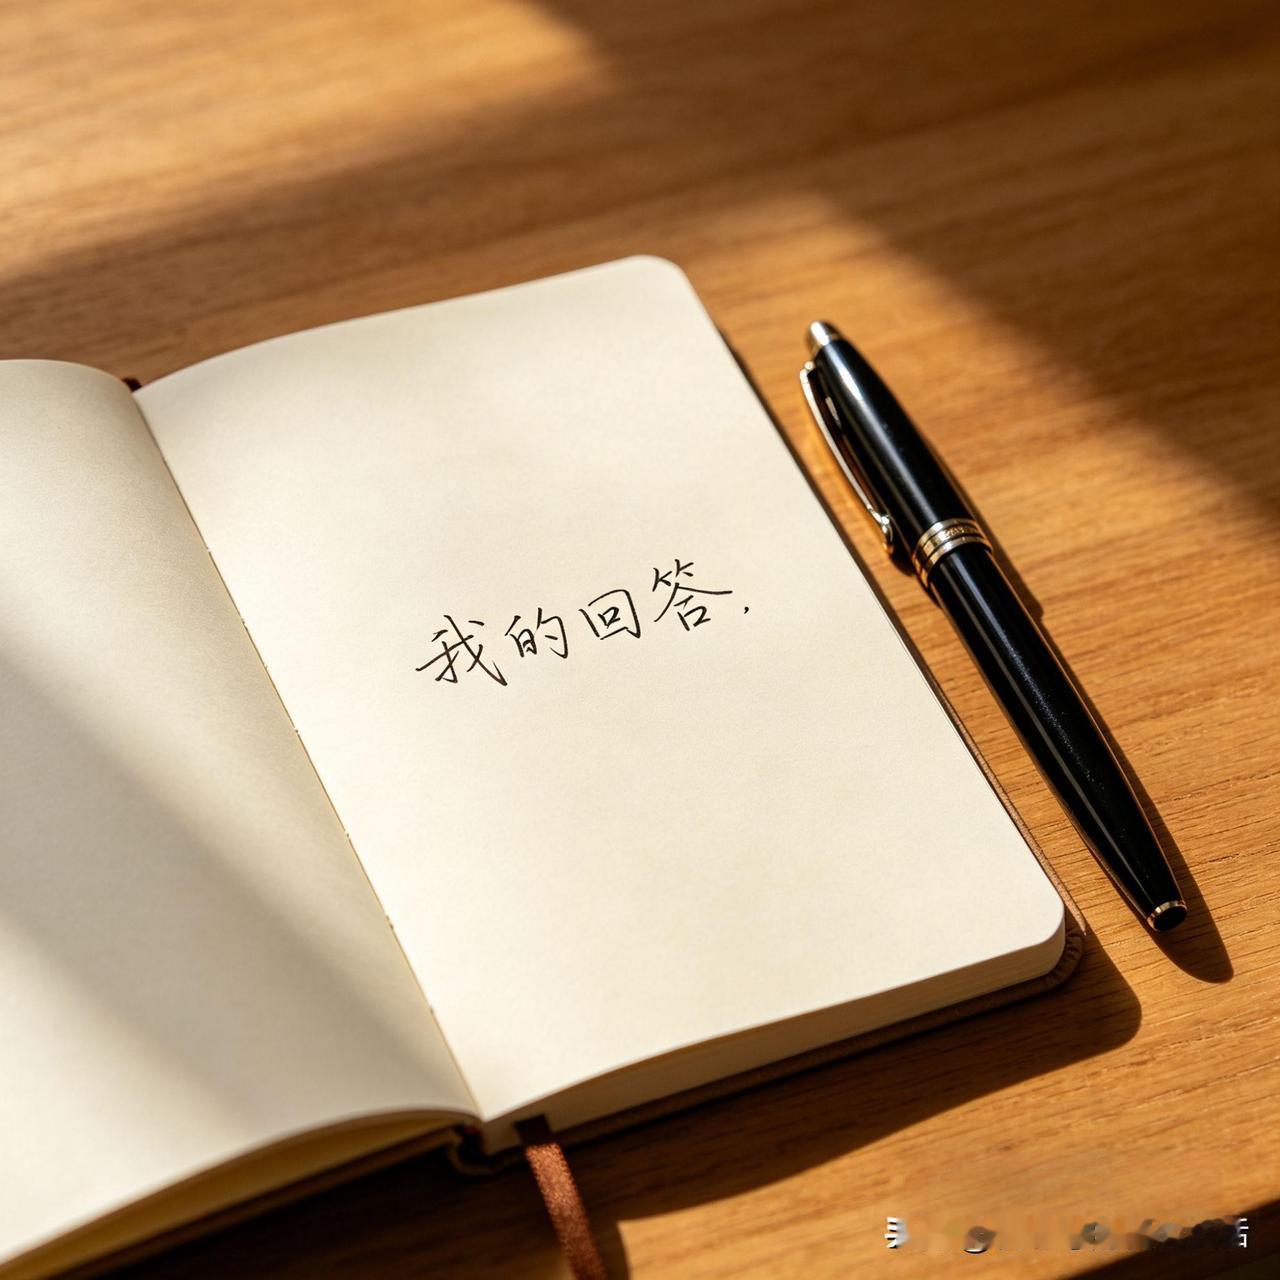 我的回答.